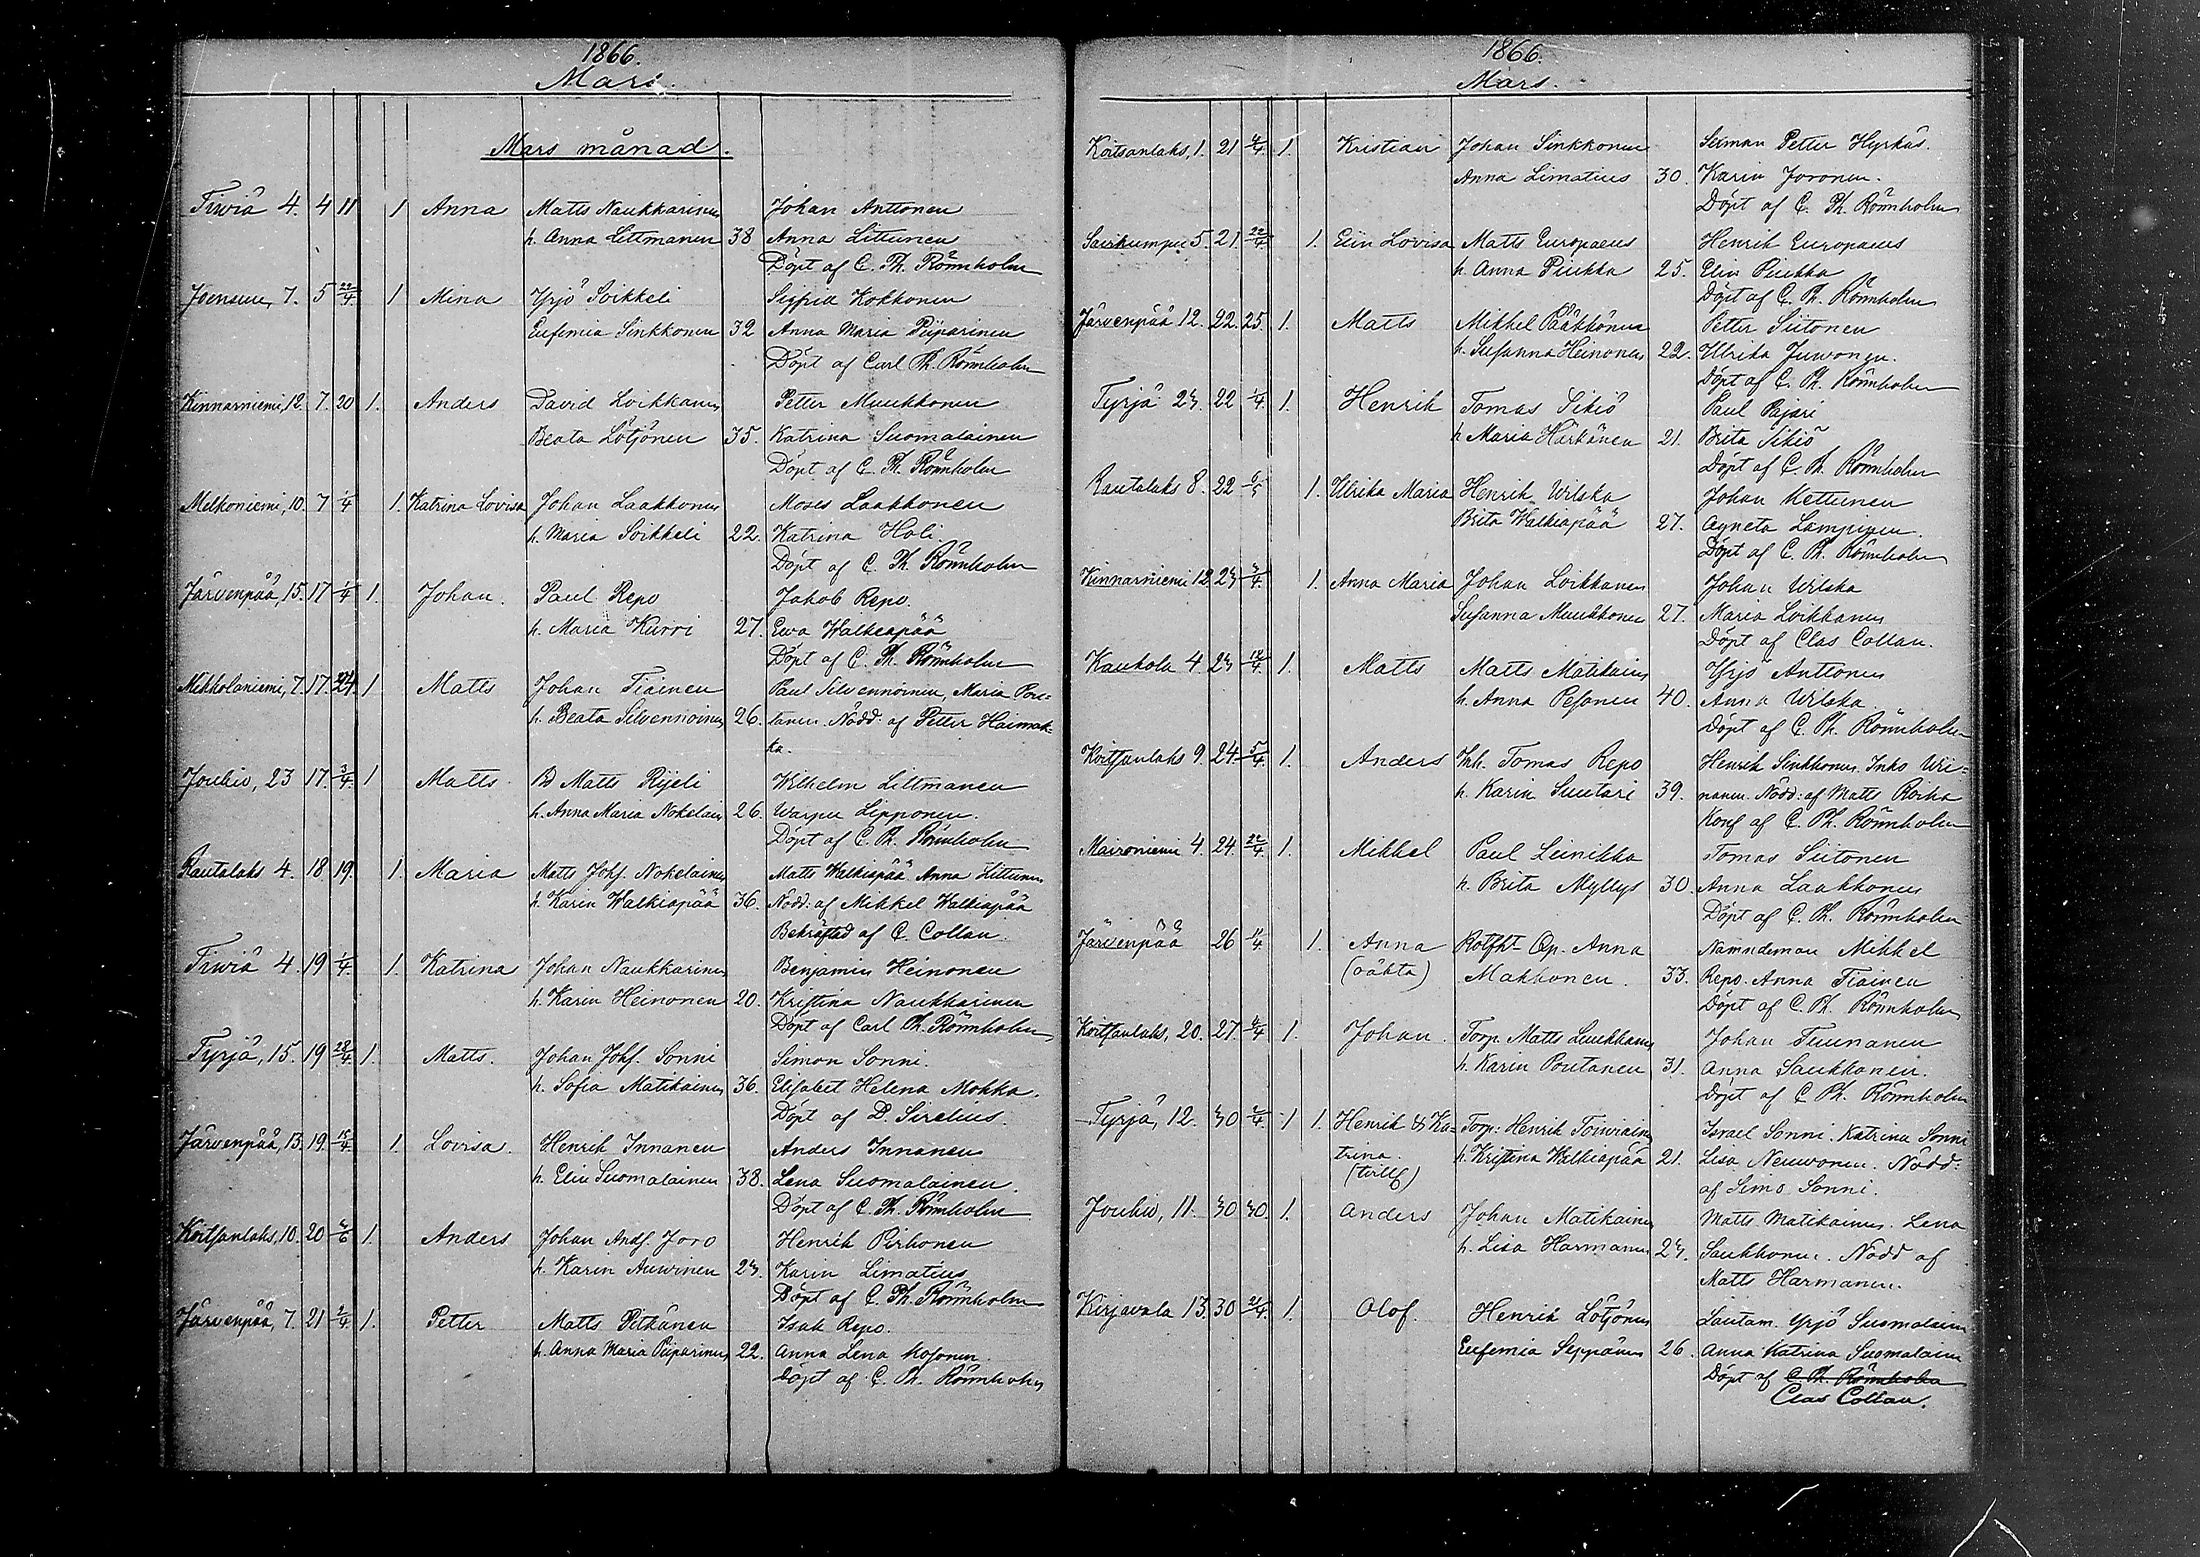 1866.
Mars.
Mars månad.
Tiviä 4. 4 11 1 Anna Matts Naukkarinen Johan Anttonen
h. Anna Littmanen 38 Anna Littunen
Döpt af C. Th. Römnholm
Joensuu, 7. 5 22/4 1 Mina Yrjö Soikkeli Sigfrid Kokkonen
Eufemia Sinkkonen 32 Anna Maria Piiparinen
Döpt af Carl Th. Römnholm
Kinnarniemi, 12. 7. 20 1. Anders David Loikkanen Petter Muukkonen
Beata Lötjönen 35. Katrina Suomalainen
Döpt af C. Th. Römnholm
Melkoniemi, 10. 7 1/4 1. Katrina Lovisa Johan Laakkonen Moses Laakkonen
h. Maria Soikkeli 22. Katrina Holi
Döpt af C. Th. Römnholm
Järvenpää, 15. 17 1/4 1. Johan. Paul Repo Jakob Repo.
h. Maria Kurvi 27. Ewa Walkeapää
Döpt af C. Th. Römnholm
Mikkolaniemi, 7. 17. 1 Matts Johan Tiainen Paul Silvennoinen, Maria Pou-
h. Beata Silvennoinen 26. tanen. Nödd. af Petter Haimak-
ka.
Joukio, 23 17. 3/4 1 Matts. Bd Matts Rijeli Wilhelm Littmanen
h. Anna Maria Nokelain 26. Warpu Lipponen.
Döpt af C. Th. Römnholm
Rautalaks 4. 18 19. 1. Maria Matts Johs. Nokelainen Matts Walkiapää Anna Littunen
h. Karin Walkiapää 36. Nödd: af Mikkel Walkiapää
Bekräftad af C. Collan.
Tiviä 4. 19 1/4 1. Katrina Johan Naukkarinen Benjamin Heinonen
h. Karin Heinonen 20. Kristina Naukkarinen
Döpt af Carl Th. Römnholm
Tyrjä, 15. 19 28/4 1. Matts. Johan Johs. Sonni Simon Sonni.
h. Sofia Matikainen 36. Elisabet Helena Mokka.
Döpt af D. Sirelius.
Järvenpää, 13. 19. 15/4 1. Lovisa. Henrik Innanen Anders Innanen
h. Elin Suomalainen 38. Lena Suomalainen.
Döpt af C. Th. Römnholm
Koitsanlaks, 10. 20 3/6 1. Anders Johan Ands. Joro Henrik Pirhonen
h. Karin Auvinen 23. Karin Limatius
Döpt af C. Th. Römnholm
Järvenpää, 7. 21 2/4 1. Petter Matts Pitkänen Isak Repo.
h. Anna Maria Piiparinen 22. Anna Lena Kosonen.
Döpt af C. Th. Römnholm
1866.
Mars.
Koitsanlaks, 1. 21 4/4 1. Kristian Johan Sinkkonen Simon Petter Hyrkäs.
Anna Limatius 30. Karin Joronen.
Döpt af C. Th. Römnholm
Sairkumpu 5. 21. 22/4 1. Elin Lovisa Matts Europaeus Henrik Europaeus
h. Anna Piukka 25. Elin Piukka
Döpt af C. Th. Römnholm
Järvenpää 12. 22. 25. 1. Matts Mikkel Pääkkönen Petter Siitonen
h. Susanna Heinonen 22. Ulrika Juwonen.
Döpt af C. Th. Römnholm
Tyrjä 23. 22 1/4 1. Henrik Tomas Sikiö Paul Pajari
h Maria Härkönen 21. Brita Sikiö
Döpt af C. Th. Römnholm
Rautalaks 8. 22 6/5 1. Ulrika Maria Henrik Wilska Johan Kettunen
Brita Walkiapää 27. Agneta Lampinen.
Döpt af C. Th. Römnholm
Kinnarniemi 12 23 3/4. 1. Anna Maria Johan Loikkanen Johan Wilska
Susanna Muukkonen 27. Maria Loikkanen
Döpt af Clas Collan.
Kaukola 4 23 1. Matts Matts Matikain Yrjö Anttonen
h. Anna Pesonen 40. Anna Wilska.
Döpt af C. Th. Römnholm
Koitsanlaks 9. 24. 5/4. 1. Anders Inh. Tomas Repo Henrik Sinkkonen. Inko Wri-
h. Karin Suutari 39. nanen. Nödd: af Matts Roika
Konf af C. Th. Römnholm
Maironiemi 4. 24. 22/4 1. Mikkel Paul Leinikka Tomas Siitonen
h. Brita Myllys 30. Anna Laakkonen
Döpt af C. Th. Römnholm
Järvenpää 26 1/4 1. Anna Rotfht Qp. Anna Nämndeman Mikkel
(oäkta) Makkonen. 33. Repo. Anna Tiainen
Döpt af C. Th. Römnholm
Koitsanlaks, 20. 27. 4/4 1. Johan. Torp. Matts Luukkanen Johan Tiuunanen
h. Karin Poutanen 31. Anna Saukkonen.
Döpt af C Th. Römnholm
Tyrjä, 12. 30 2/4. 1 1. Henrik & Ka- Torp. Henrik Toiwiainen Israel Sonni. Katrina Sonni
trina. h. Kristina Walkiapää 21. Lisa Neuwonen. Nödd:
(tvill) af Simo Sonni.
Joukio, 11. 30 30. 1. Anders Johan Matikainen Matts Matikainen. Lena
h. Lisa Harmanen 23. Saukkonen. Nödd af
Matts Harmanen.
Kirjavala 13. 30 21/4. 1. Olof. Henrik Lötjönen Lautam. Yrjö Suomalain
Eufemia Seppänen 26. Anna Katrina Suomalain
Döpt af C. Th. Römnholm
Clas Collan.